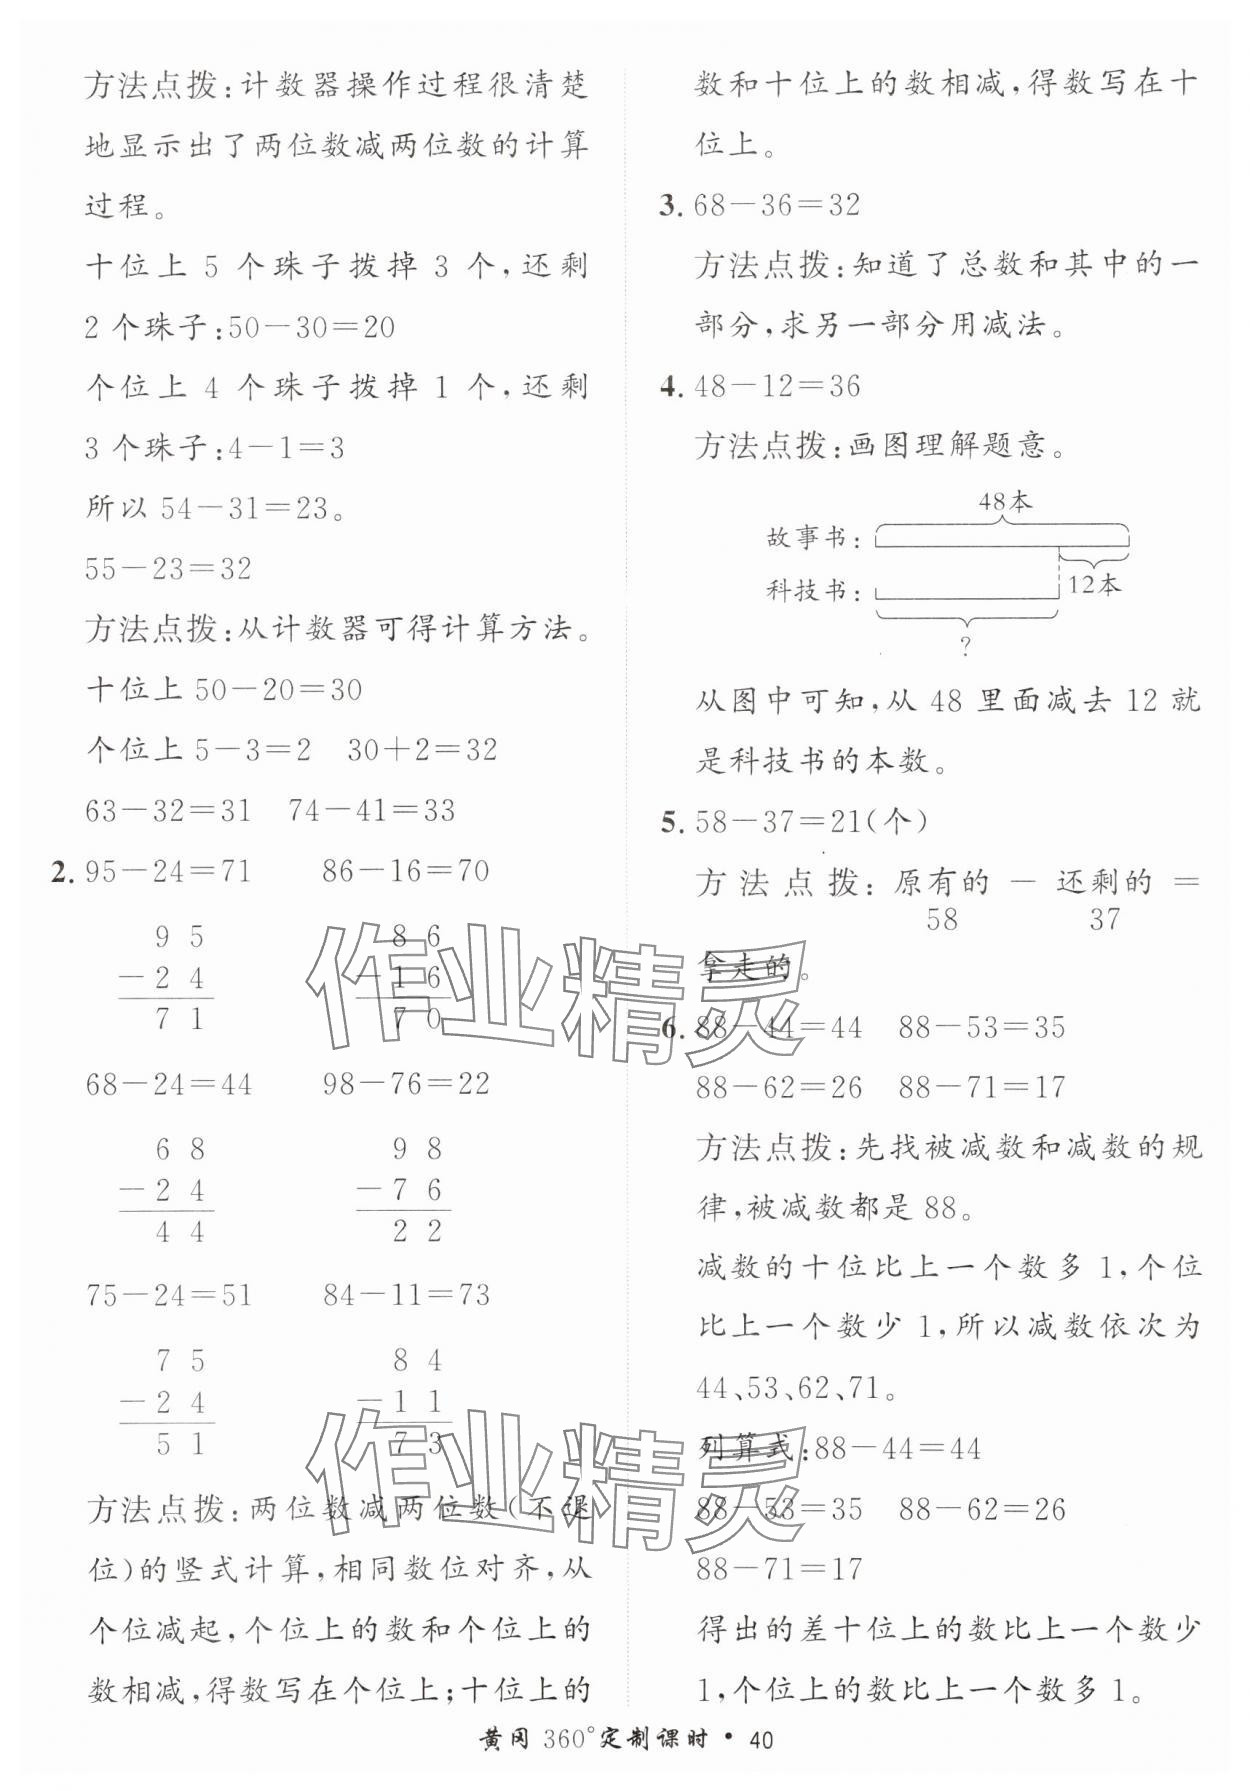 方法点拨:计数器操作过程很清楚
地显示出了两位数减两位数的计算
过程。
十位上 5 个珠子拨掉 3 个,还剩
2 个珠子:50-30=20
个位上 4 个珠子拨掉 1 个,还剩
3 个珠子:4-1=3
所以 54-31=23。
55-23=32
方法点拨:从计数器可得计算方法。
十位上 50-20=30
个位上 5-3=2  30+2=32
63-32=31  74-41=33
2. 95-24=71  86-16=70
9 5  8 6
-2 4  -1 6
7 1  7 0
68-24=44  98-76=22
6 8  9 8
-2 4  -7 6
4 4  2 2
75-24=51  84-11=73
7 5  8 4
-2 4  -1 1
5 1  7 3
方法点拨:两位数减两位数(不退
位)的竖式计算,相同数位对齐,从
个位减起,个位上的数和个位上的
数相减,得数写在个位上;十位上的
数和十位上的数相减,得数写在十
位上。
3. 68-36=32
方法点拨:知道了总数和其中的一
部分,求另一部分用减法。
4. 48-12=36
方法点拨:画图理解题意。
48本
故事书:
科技书:  12本
?
从图中可知,从 48 里面减去 12 就
是科技书的本数。
5. 58-37=21(个)
方法点拨: 原有的 — 还剩的 =
58  37
拿走的。
6. 88-44=44  88-53=35
88-62=26  88-71=17
方法点拨:先找被减数和减数的规
律,被减数都是 88。
减数的十位比上一个数多 1,个位
比上一个数少 1,所以减数依次为
44、53、62、71。
列算式:88-44=44
88-53=35  88-62=26
88-71=17
得出的差十位上的数比上一个数少
1,个位上的数比上一个数多 1。
黄冈 360°定制课时 · 40
作业精灵
作业精灵